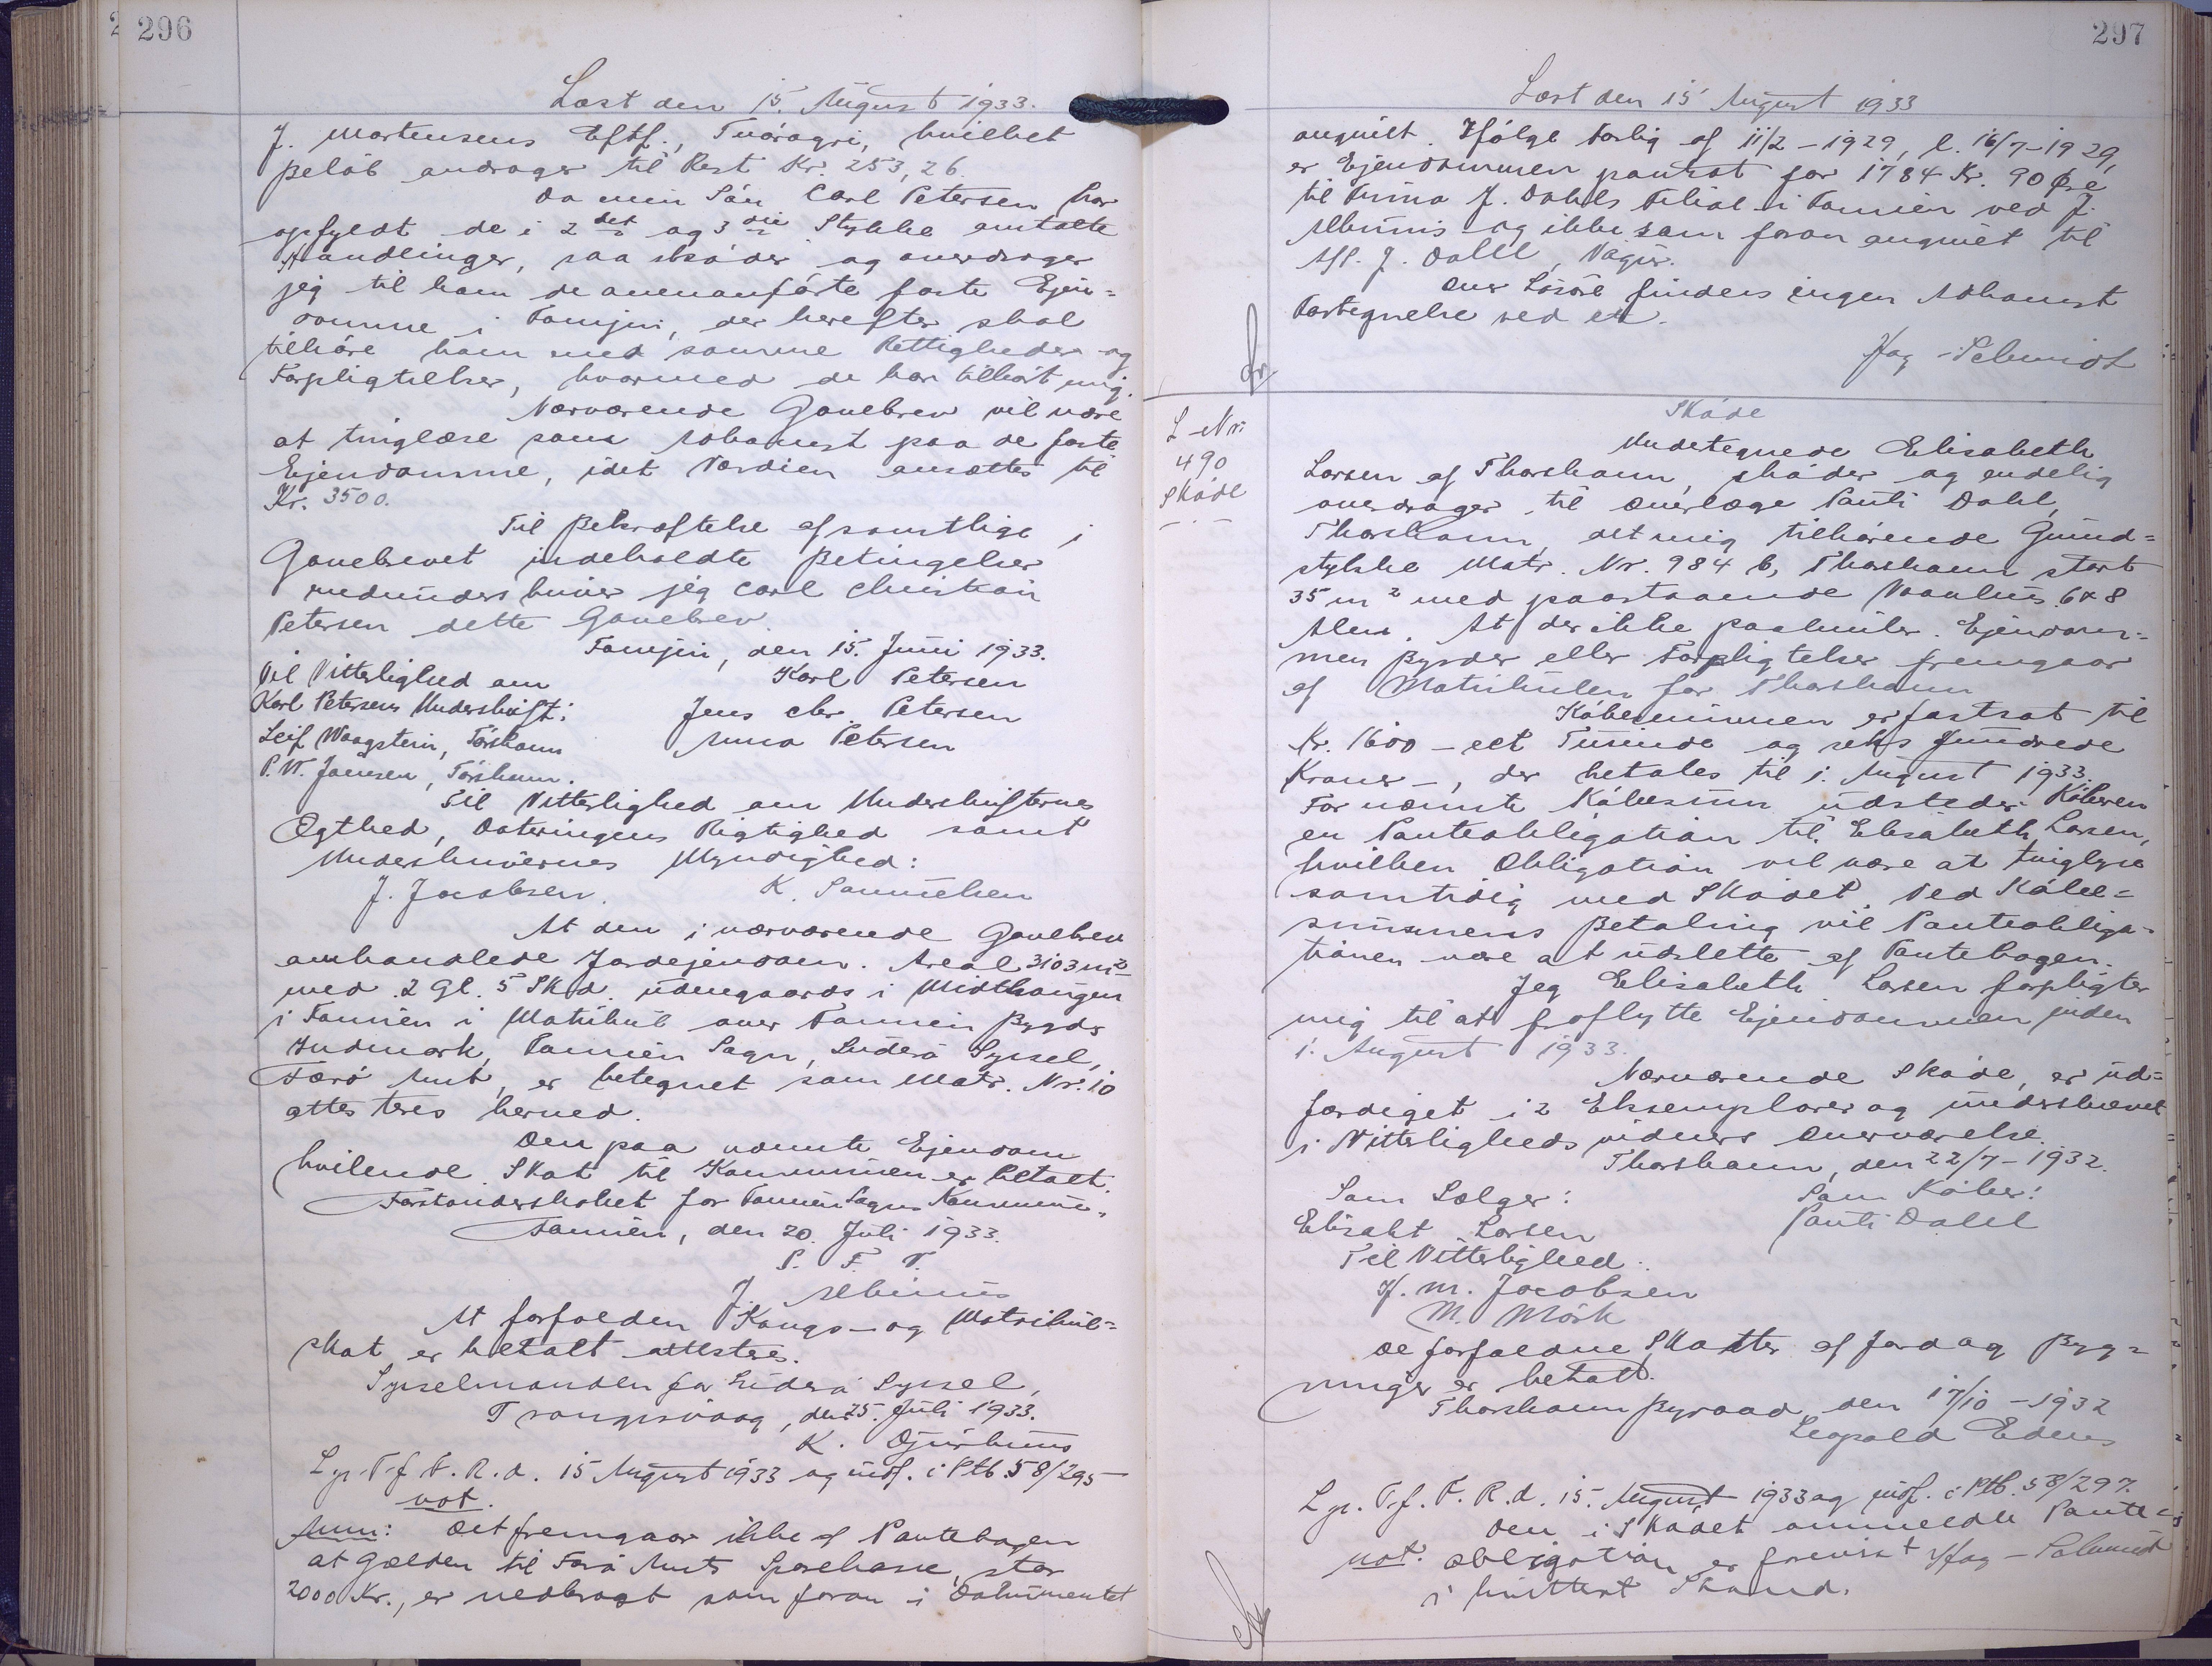 296
Læst den 15. August 1933.
J. Mortensens Eftf., Tvøragri, hvilket
Beløb andrager til Rest Kr. 253,26.
Da min Søn Carl Petersen har
opfyldt de i 2det og 3die Stykke omtalte
Handlinger, saa skøder og overdrager
jeg til ham de ovenanførte faste Ejen=
domme i Famjin, der herefter skal
tilhøre ham med samme Rettigheder og
Forpligtelser, hvormed de har tilhørt mig.
Nærværende Gavebrev vil være
at tinglæse som Adkomst paa de faste
Ejendomme, idet Værdien ansættes til
Kr. 3500.
Til Bekræftelse af samtlige i
Gavebrevet indeholdte Betingelser
medunderskriver jeg Carl Christian
Petersen dette Gavebrev.
Famjin, den 15. Juni 1933.
Til Vitterlighed om Karl Petersen
Karl Petersens Underskrift: Jens Chr. Petersen
Leif Waagstein, Tórshavn Anna Petersen
P. W. Joensen, Tórshavn.
Til Vitterlighed om Underskrifternes
Ægthed, Dateringens Rigtighed samt
Underskrivernes Myndighed:
J. Jacobsen. K. Samuelsen
At den i nærværende Gavebrev
omhandlede Jordejendom. Areal 3103 m²
med 2 Gl. 5 Skd. udengaards i Midthaugen
i Famien i Matrikul over Famien Bygds
Indmark, Famien Sogn, Suderø Syssel,
Færø Amt, er betegnet som Matr. Nr. 10
attesteres herved.
Den paa nævnte Ejendom
hvilende Skat til Kommunen er betalt.
Forstanderskabet for Famien Sogns Kommune,
Famien, den 20. Juli 1933.
P. F. V.
J. Albinus
At forfalden Kongs- og Matrikul=
skat er betalt attesteres.
Sysselmanden for Suderø Syssel,
Trangisvaag, den 25. Juli 1933.
K. Djurhuus
Lyst T. f. F. R. d. 15 August 1933 og indf. i Ptb. 58/295
not.
Anm: Det fremgaar ikke af Pantebogen
at Gælden til Færø Amts Sparekasse, stor
2000 Kr., er nedbragt som foran i Dokumentet
297
Læst den 15 August 1933
angivet. Ifølge Forlig af 11/2-1929, l. 16/7-1929,
er Ejendommen pantsat for 1784 Kr. 90 Øre
til Firma J. Dahls Filial i Famien ved J.
Albinus og ikke som foran angivet til
J. Dahl, Vágur.
Over Løsøre findes ingen Adkomst
Fortegnelse ved en.
Hag-Schmidt
L Nr.
490
Skøde
Skøde
Undertegnede Elisabeth
Larsen af Thorshavn, skøder og endelig
overdrager til Overlæge Pauli Dahl,
Thorshavn, det mig tilhørende Grund=
stykke Matr. Nr. 984 b, Thorshavn stort
35 m² med paastaaende Vaanhus 6x8
Alen. At der ikke paahviler Ejendom=
men Byrder eller Forpligtelser fremgaar
af Matrikulen for Thorshavn
Købesummen er fastsat til
Kr. 1600 - eet Tusinde og seks Hundrede
Kroner -, der betales til 1. August 1933.
For nævnte Købesum udsteder Køberen
en Panteobligation til Elisabeth Larsen,
hvilken Obligation vil være at tinglyse
samtidig med Skødet. Ved Købe=
summens Betaling vil Panteobliga=
tionen være at udslette af Pantebogen.
Jeg Elisabeth Larsen forpligter
mig til at fraflytte Ejendommen inden
1. August 1933.
Nærværende Skøde, er ud=
færdiget i 2 Eksemplarer og underskrevet
i Vitterligheds vidners Overværelse.
Thorshavn, den 22/7-1932.
Som Sælger: Som Køber:
Elisabt Larsen Pauli Dahl
Til Vitterlighed:
H. M. Jacobsen
M. Mörk
De forfaldne Skatter af Jord og Byg=
ninger er betalt.
Thorshavn Byraad, den 17/10-1932
Leopold
Lyst T. f. F. R. d. 15. August 1933 og indf. i Ptb. 58/297.
Den i Skødet ommeldte Pante=
not. obligation er forevist Hag-Schmidt
i kvitteret Stand.